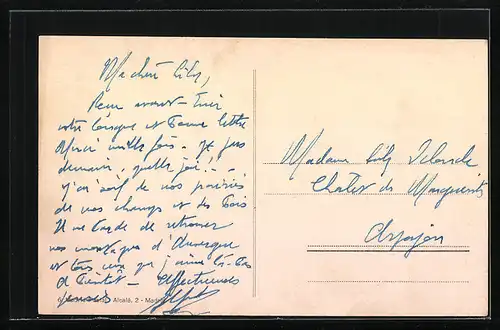 Ma chère Lily,
votre longue et bonne lettre
Merci mille fois. Je pars
demain, quelle joie! - -
J'ai soif de nos prairies
de nos champs et des bois
Il me tarde de retrouver
nos montagnes d'Auvergne
et tous ceux que j'aime là-bas
à bientôt - Affectueuses
pensées
Alcalá, 2 - Mad
Madame Lily
Chalet des Marguerites
Arpajon